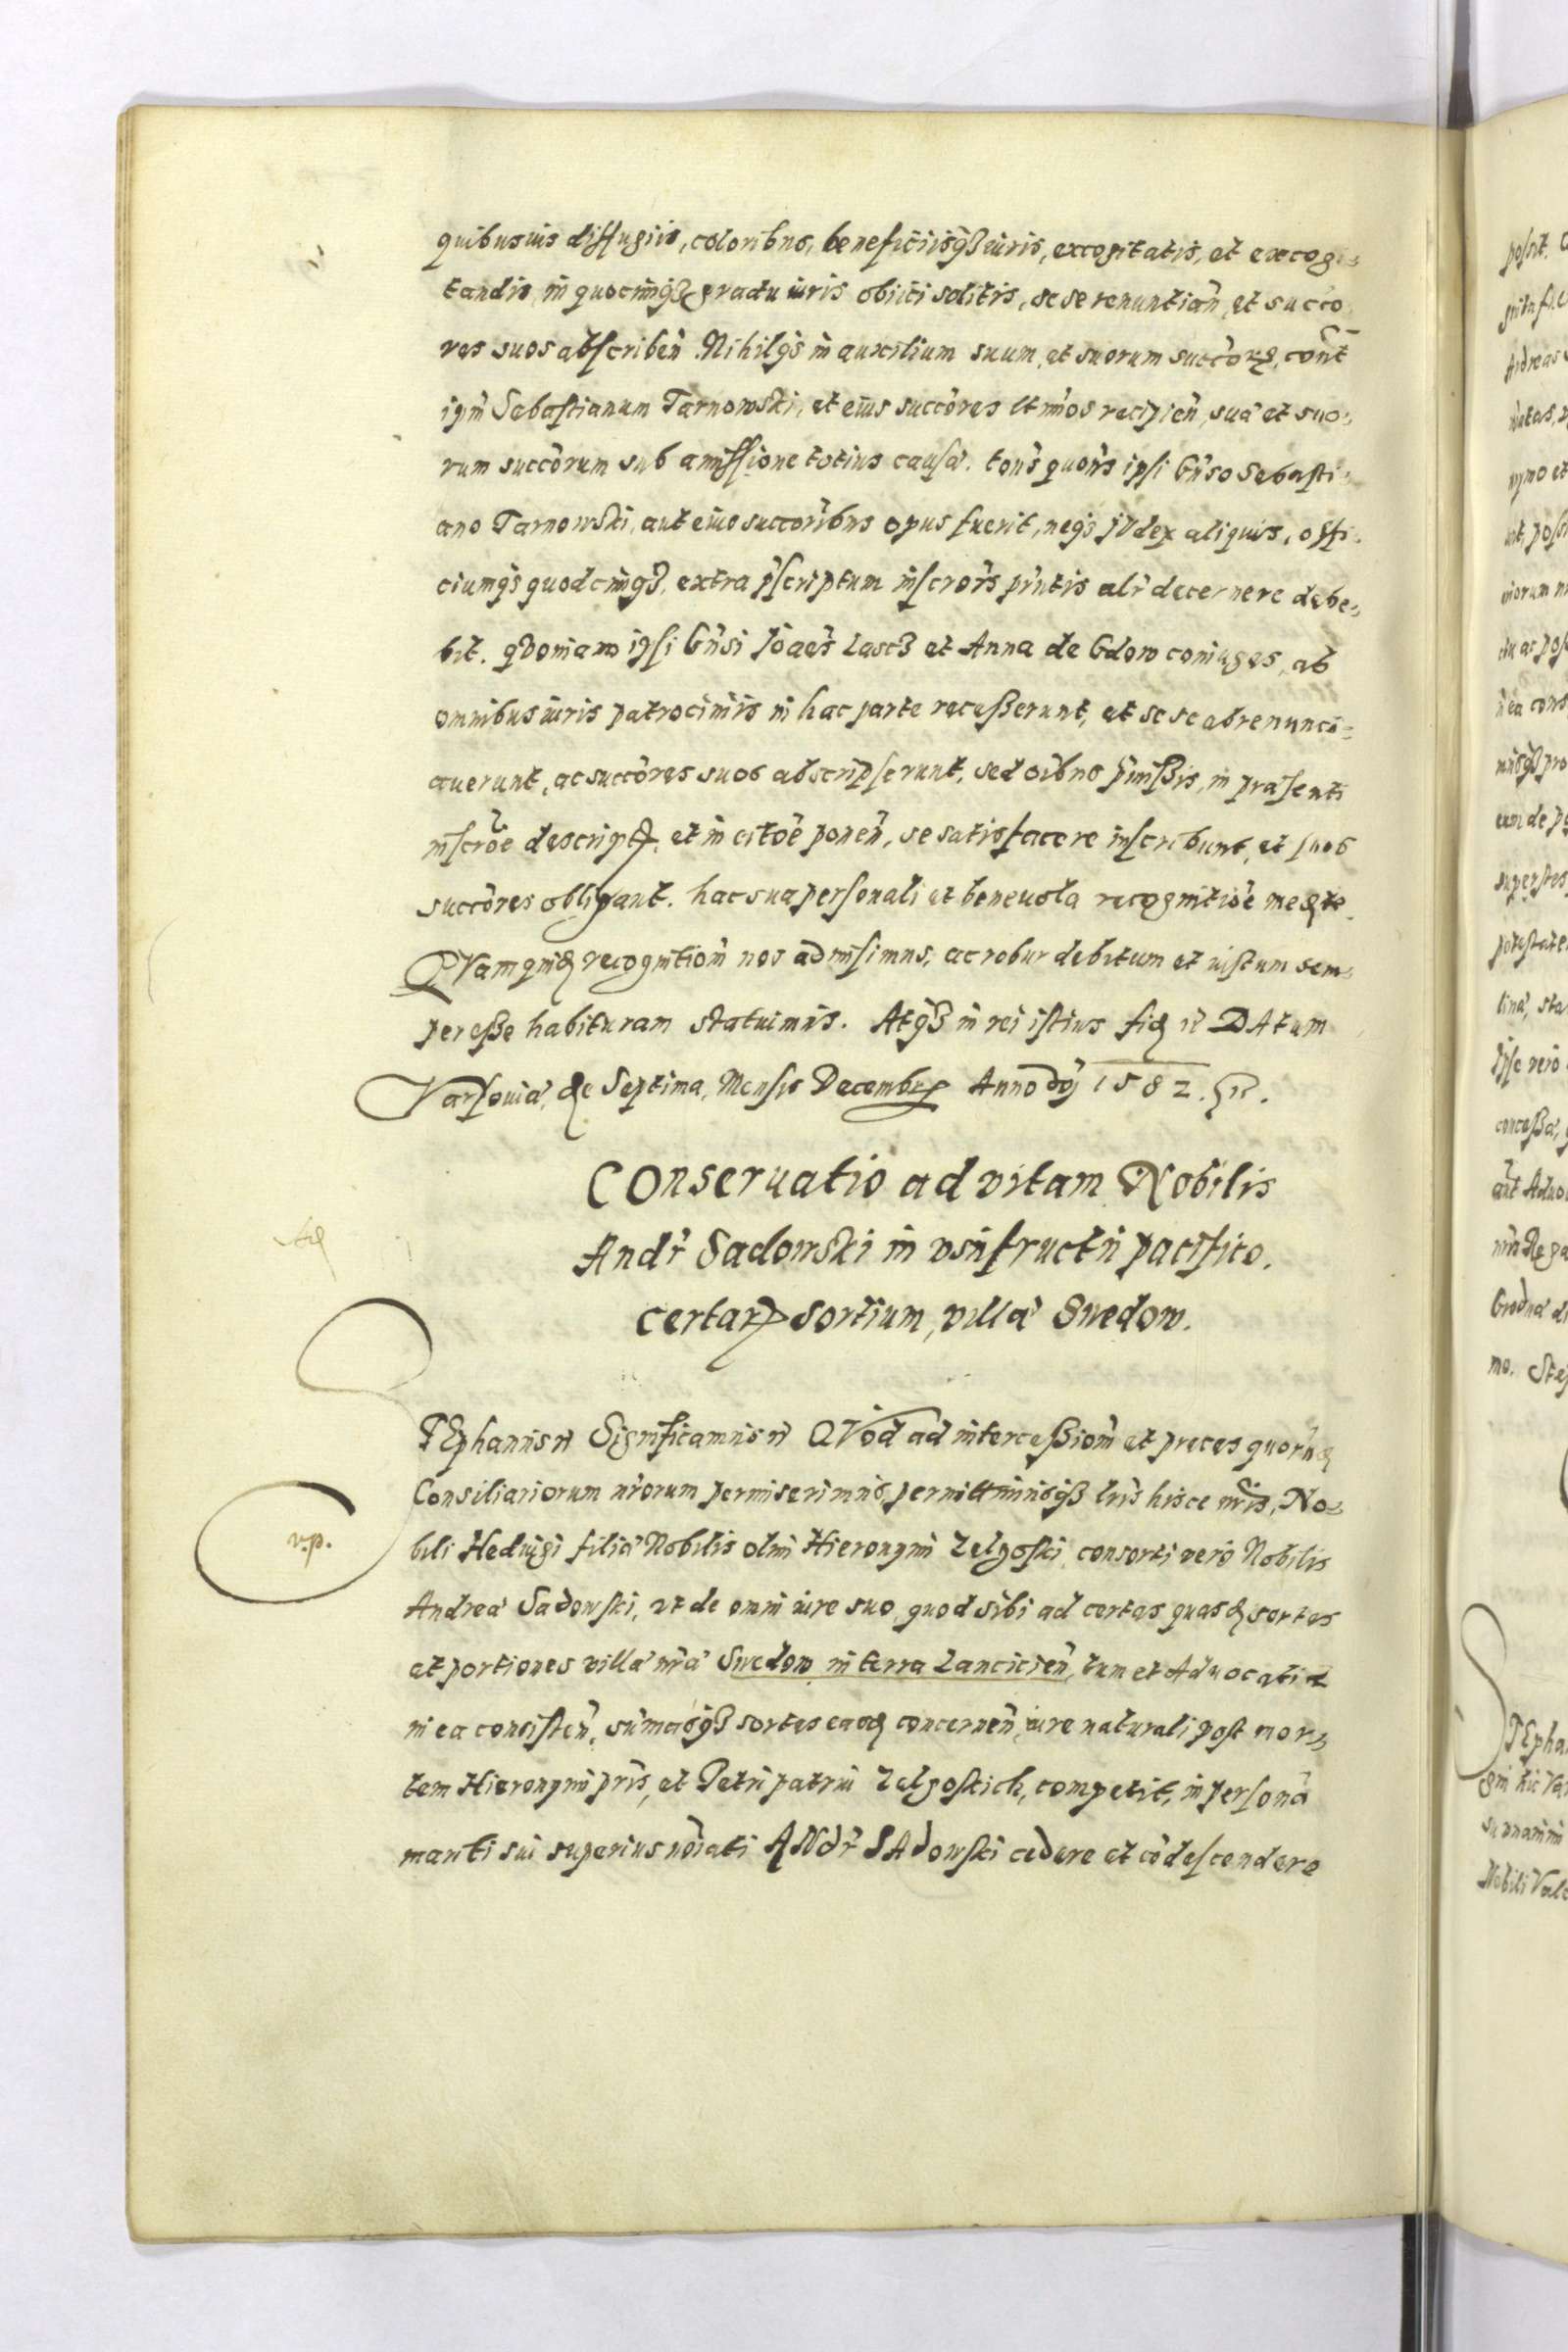 quibusuis diffugiis, coloribus, beneficiisq3 iuris, excogitatis, et excogi-
tandis, in quocunq3 gradu iuris obiici solitis, sese renuntiañ, et succo
res suos abscribeñ. Nihilq3 in auxilium suum, et suorum succorꝝ, coñt
ipm̃ Sebastianum Tarnowski, et eius succores lt̃mos recipieñ, sua et suo-
rum succorum sub amissione totius causæ. tot̃s quot̃s ipsi Gñso Sebasti-
ano Tarnowski, aut eius succoribus opus fuerit, neq3 iVdex aliquis, offi-
ciumq3 quodcunq3, extra p̃scriptum inscrõis pñtis alr̃ decernere debe-
bit. qVoniam ipsi Gñsi Joaẽs Lasc3 et Anna de Gdow coniuges, ab
omnibus iuris patrociniis in hac parte recesserunt, et sese abrenunci-
auerunt, ac succores suos abscripserunt, sed oĩbus p̃missis, in præsenti
inscrõe descriptꝭ, et in citoẽ poneñ, se satisfacere inscribunt, et suos
succores obligant. hac sua personali et beneuola recognitiõe mediãte.
QVamquidem recognitioñ nos admisimus, ac robur debitum et iustum sem-
per esse habituram statuimus. Atq3 in rei istius fidem DAtum
Varsouiæ, die Septima, Mensis Decembrꝭ Anno dñi 1582.
COnseruatio ad vitam Nobilis
Andr̃ Sadowski in vsufructu pacifico.
certarꝝ sortium, villæ Suedow.
STEphanus Significamus QVod ad intercessioñ et preces quorũd
v.p.
Consiliariorum nr̃orum permiserimus, permittimusq3 lr̃is hisce nr̃is, No-
bili Heduigi filiæ Nobilis olim Hieronymi Zelgoski, consorti vero Nobilis
Andreæ Sadowski, vt de omni iure suo, quod sibi ad certas quasdam sortes
et portiones villæ nr̃æ Suedow in terra Lancicieñ, tum et Aduocatiæ
in ea consisteñ, sum̃asq3 sortes easdem concerneñ, iure naturali post mor-
tem Hieronymi pr̃is, et Petri patrui Zelgoskich, competit, in personã
mariti sui superius noĩati ANdr̃ SAdowski cedere et cõdescendere